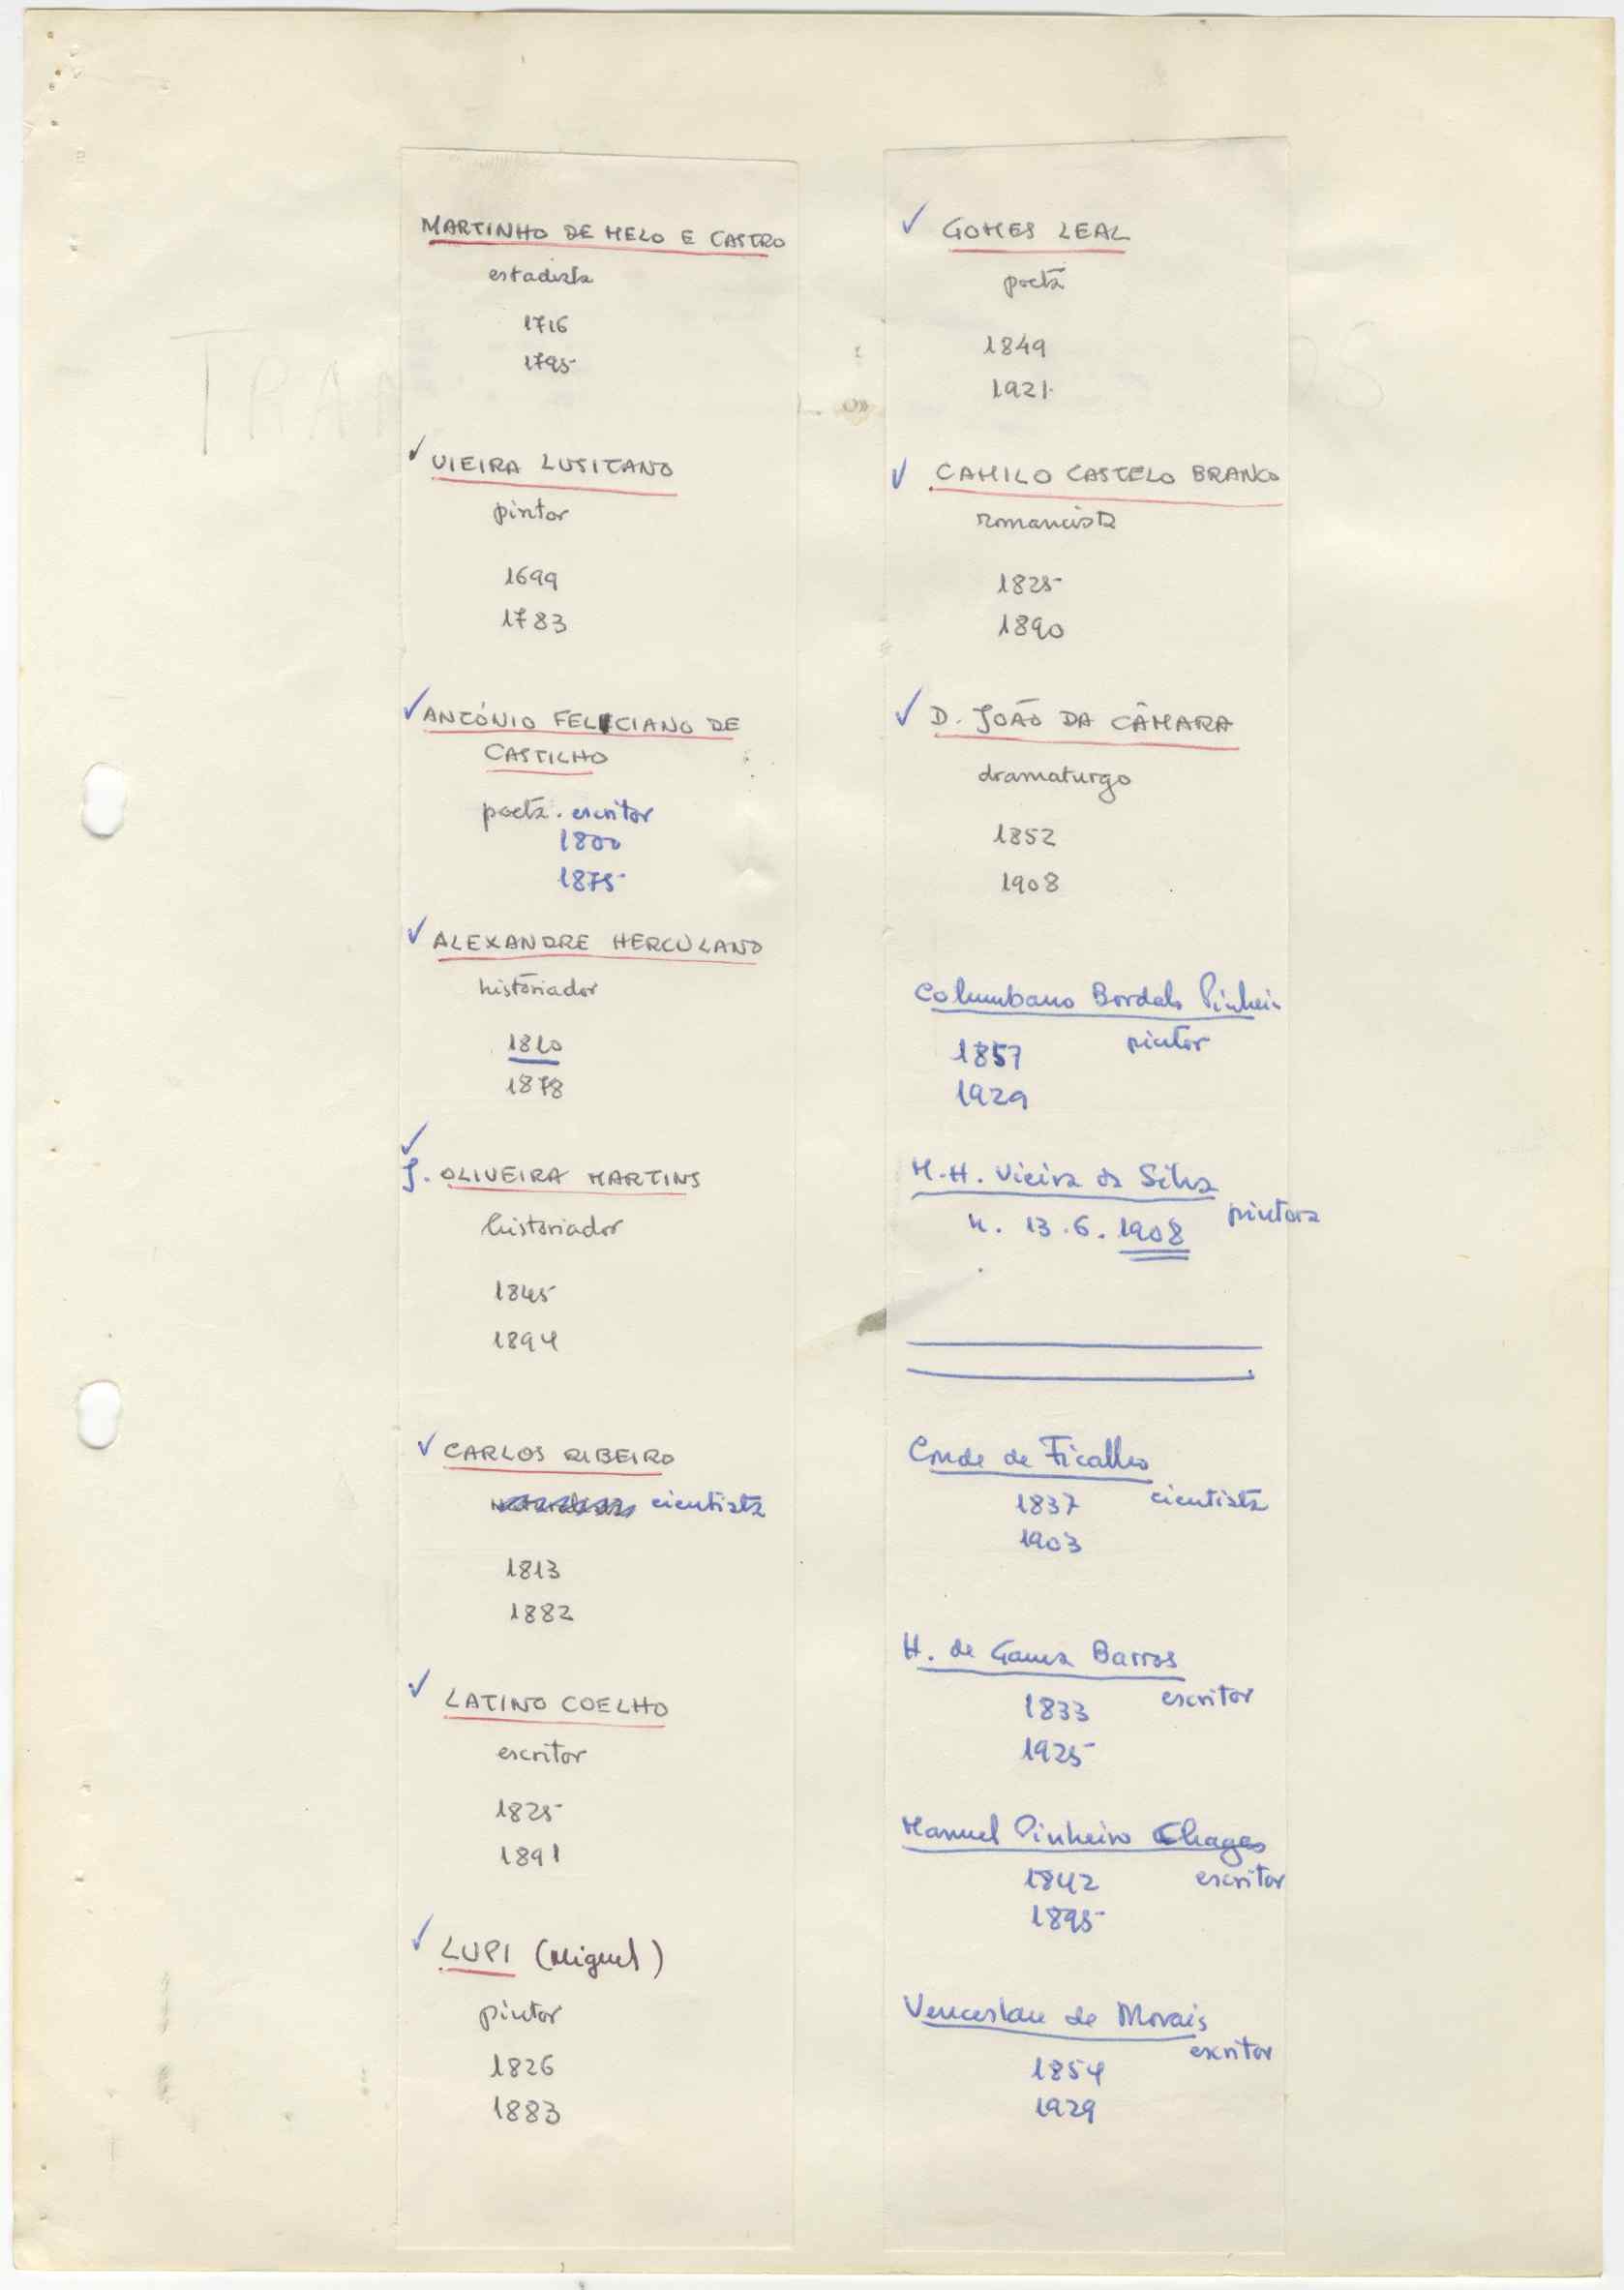 MARTINHO DE MELO E CASTRO
estadista
1716
1795
✓ VIEIRA LUSITANO
pintor
1699
1783
✓ ANTÓNIO FELICIANO DE
CASTILHO
poeta. escritor
1800
1875
✓ ALEXANDRE HERCULANO
historiador
1810
1878
✓
J. OLIVEIRA MARTINS
historiador
1845
1894
✓ CARLOS RIBEIRO
cientista
1813
1882
✓ LATINO COELHO
escritor
1825
1891
✓ LUPI (Miguel)
pintor
1826
1883
✓ GOMES LEAL
poeta
1849
1921
✓ CAMILO CASTELO BRANCO
romancista
1825
1890
✓ D. JOÃO DA CÂMARA
dramaturgo
1852
1908
Columbano Bordalo Pinheiro
pintor
1857
1929
M.H. Vieira da Silva
pintora
n. 13.6.1908
Conde de Ficalho
cientista
1837
1903
H. de Gama Barros
escritor
1833
1925
Manuel Pinheiro Chagas
escritor
1842
1895
Venceslau de Morais
escritor
1854
1929